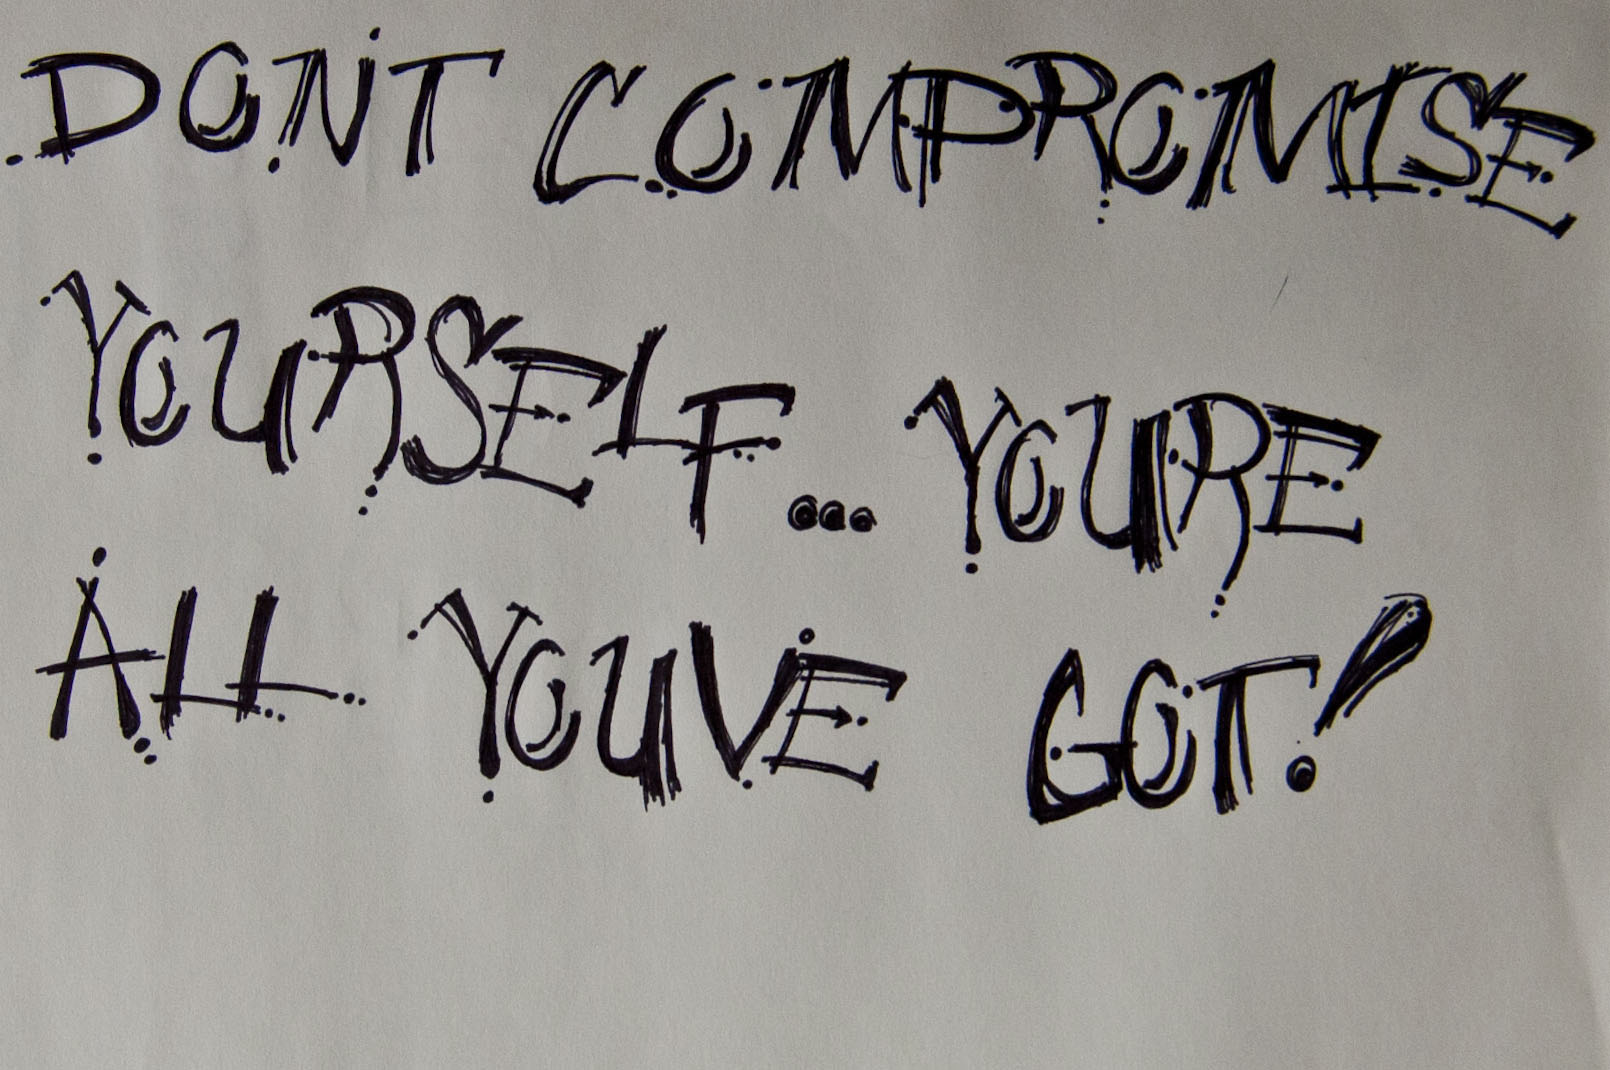 DONT COMPROMISE
YOURSELF... YOURE
ALL YOUVE GOT!